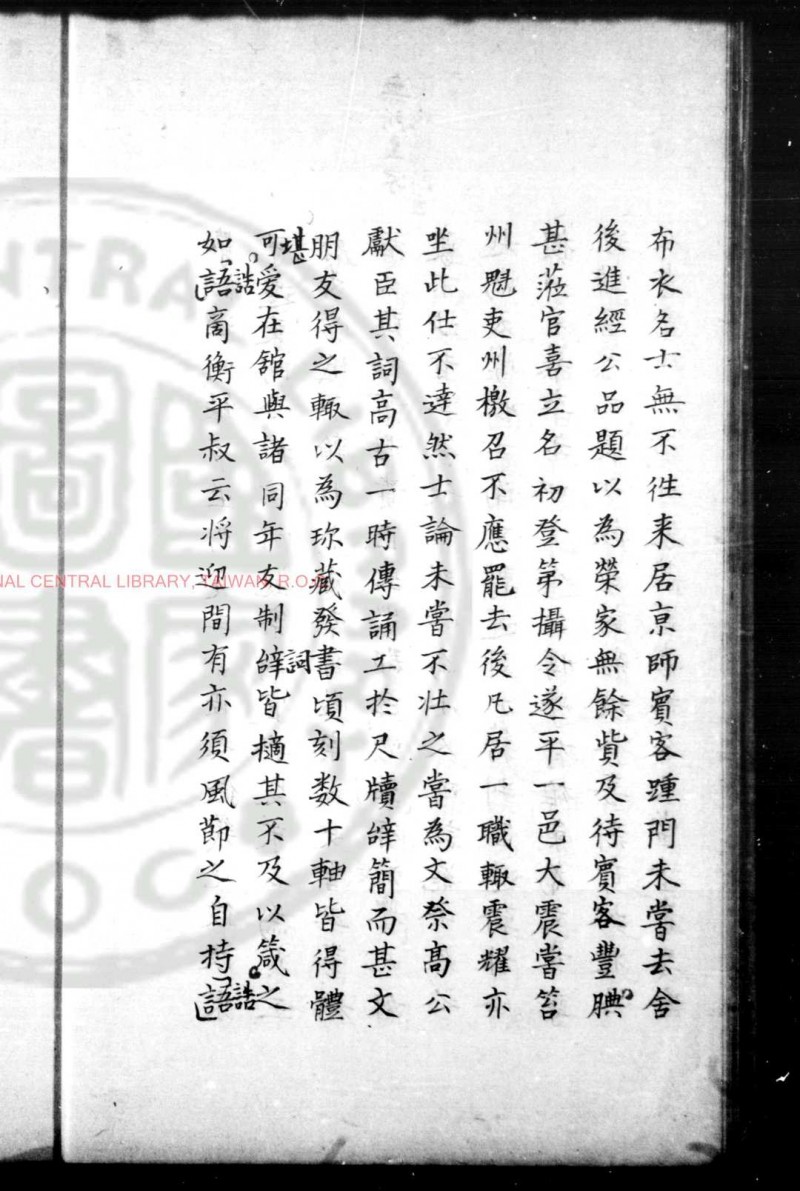 布衣名士無不徃来居京師賓客踵門未嘗去舍
後進經公品題以為榮家無餘貲及待賓客豐腆
甚蒞官喜立名初登第攝令遂平一邑大震嘗笞
州魁吏州檄召不應罷去後凡居一職輙震耀亦
坐此仕不達然士論未嘗不壮之嘗為文祭髙公
獻臣其詞高古一時傳誦工於尺牘辝簡而甚文
朋友得之輙以為珎藏發書頃刻数十軸皆得體
堪
可愛在舘與諸同年友制辝皆擿其不及以箴之
詞
如語商衡平叔云将迎間有亦須風莭之自持語
誥
誥
NAL CENTRAL LIBRARY, TAIWAN, R.O.C.